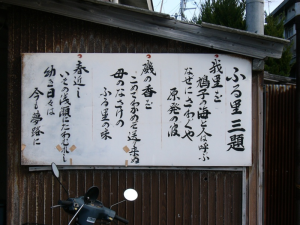 ふる里三題
我里を
鶴子の海と人は呼ぶ
なせにさわぐや
原発の波
磯の香を
このわかめで送り来ぬ
母のなさけの
ふる里の味
春近し
いその浅瀬にたわむれし
幼き日々は
今も夢路に